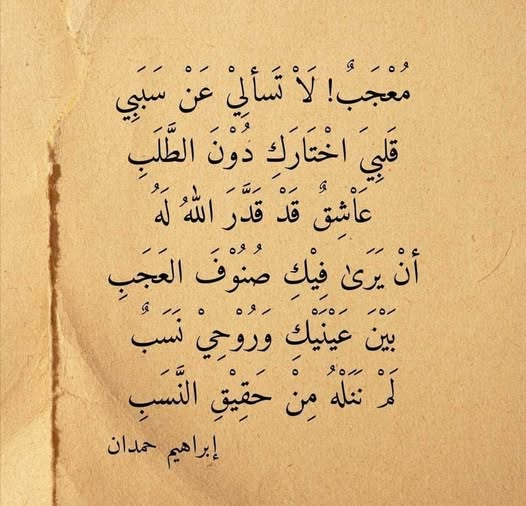 مُعْجَبٌ! لَاْ تَسألِيْ عَنْ سَبَبِي
قَلبِيَ اخْتَارَكِ دُوْنَ الطَّلَبِ
عَاْشِقٌ قَدْ قَدَّرَ اللهُ لَهُ
أنْ يَرَىٰ فِيْكِ صُنُوْفَ العَجَبِ
بَيْنَ عَيْنَيْكِ وَرُوْحِيْ نَسَبٌ
لَمْ نَنَلْهُ مِنْ حَقِيْقِ النَّسَبِ
إبراهيم حمدان